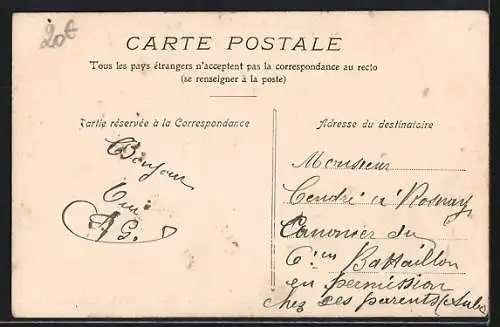 20€
CARTE POSTALE
Tous les pays étrangers n'acceptent pas la correspondance au recto
(se renseigner à la poste)
Partie réservée à la Correspondance
Bonjour
Ami
A G.
Adresse du destinataire
Monsieur
Cendré à Rosnay
Canonier du
6ième Battaillon
en permission
chez ses parents (Aube)